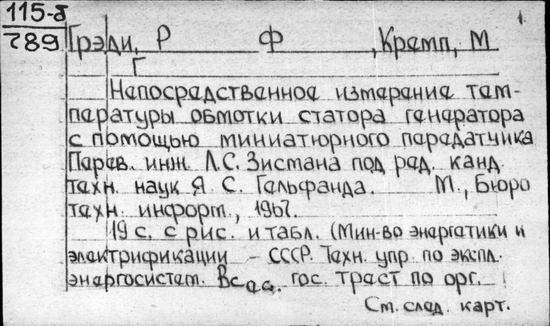 115-8
789
Грэди, Р Ф , Кремп, М
Г
Непосредственное измерение тем-
пературы обмотки статора генератора
с помощью миниатюрного передатчика
Перев. инж. Л.С. Зисмана под ред. канд.
техн. наук Я. С. Гельфанда. М., Бюро
техн. информ., 1967.
19 с. с рис. и табл. (Мин-во энергетики и
электрификации - СССР. Техн. упр. по экспл.
энергосистем. Всес. гос. трест по орг.
См. след. карт.